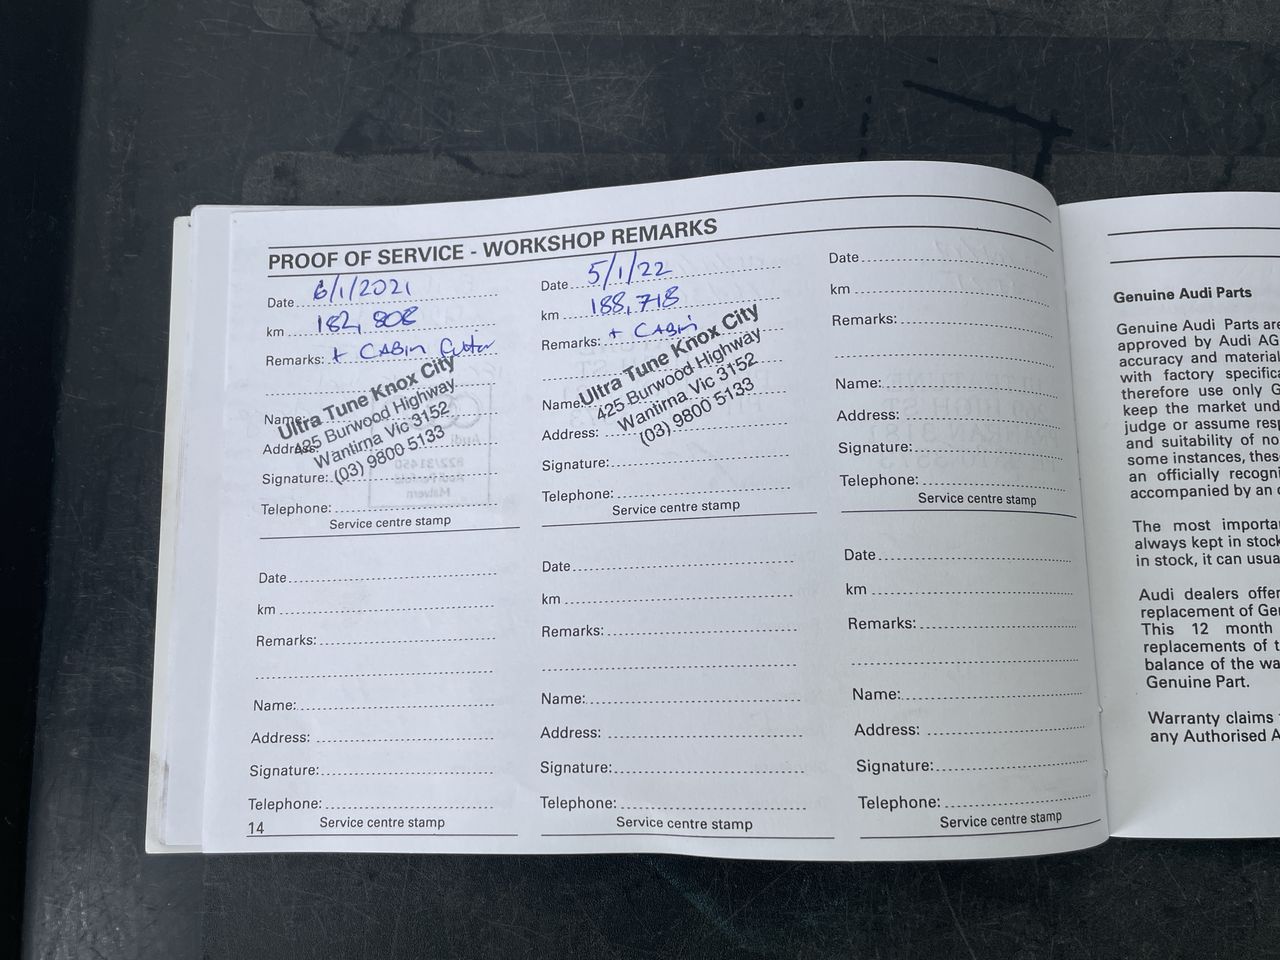 PROOF OF SERVICE - WORKSHOP REMARKS
Date 6/1/2021
km 182,808
Remarks: + CABIN Filter
Name:
Address:
Signature:
Ultra Tune Knox City
425 Burwood Highway
Wantirna Vic 3152
(03) 9800 5133
Telephone:
Service centre stamp
Date 5/1/22
km 188,718
Remarks: + CABIN
Name:
Address:
Ultra Tune Knox City
425 Burwood Highway
Wantirna Vic 3152
(03) 9800 5133
Signature:
Telephone:
Service centre stamp
Date
km
Remarks:
Name:
Address:
Signature:
Telephone:
Service centre stamp
Date
km
Remarks:
Name:
Address:
Signature:
Telephone:
Service centre stamp
Date
km
Remarks:
Name:
Address:
Signature:
Telephone:
Service centre stamp
Date
km
Remarks:
Name:
Address:
Signature:
Telephone:
Service centre stamp
14
Genuine Audi Parts
Genuine Audi Parts are
approved by Audi AG
accuracy and material
with factory
therefore use only
keep the market
judge or assume
and suitability of
some instances,
an officially
accompanied by an
The most
always kept in stock
in stock, it can
Audi dealers offer
replacement of
This 12 month
replacements of
balance of the
Genuine Part.
Warranty claims
any Authorised